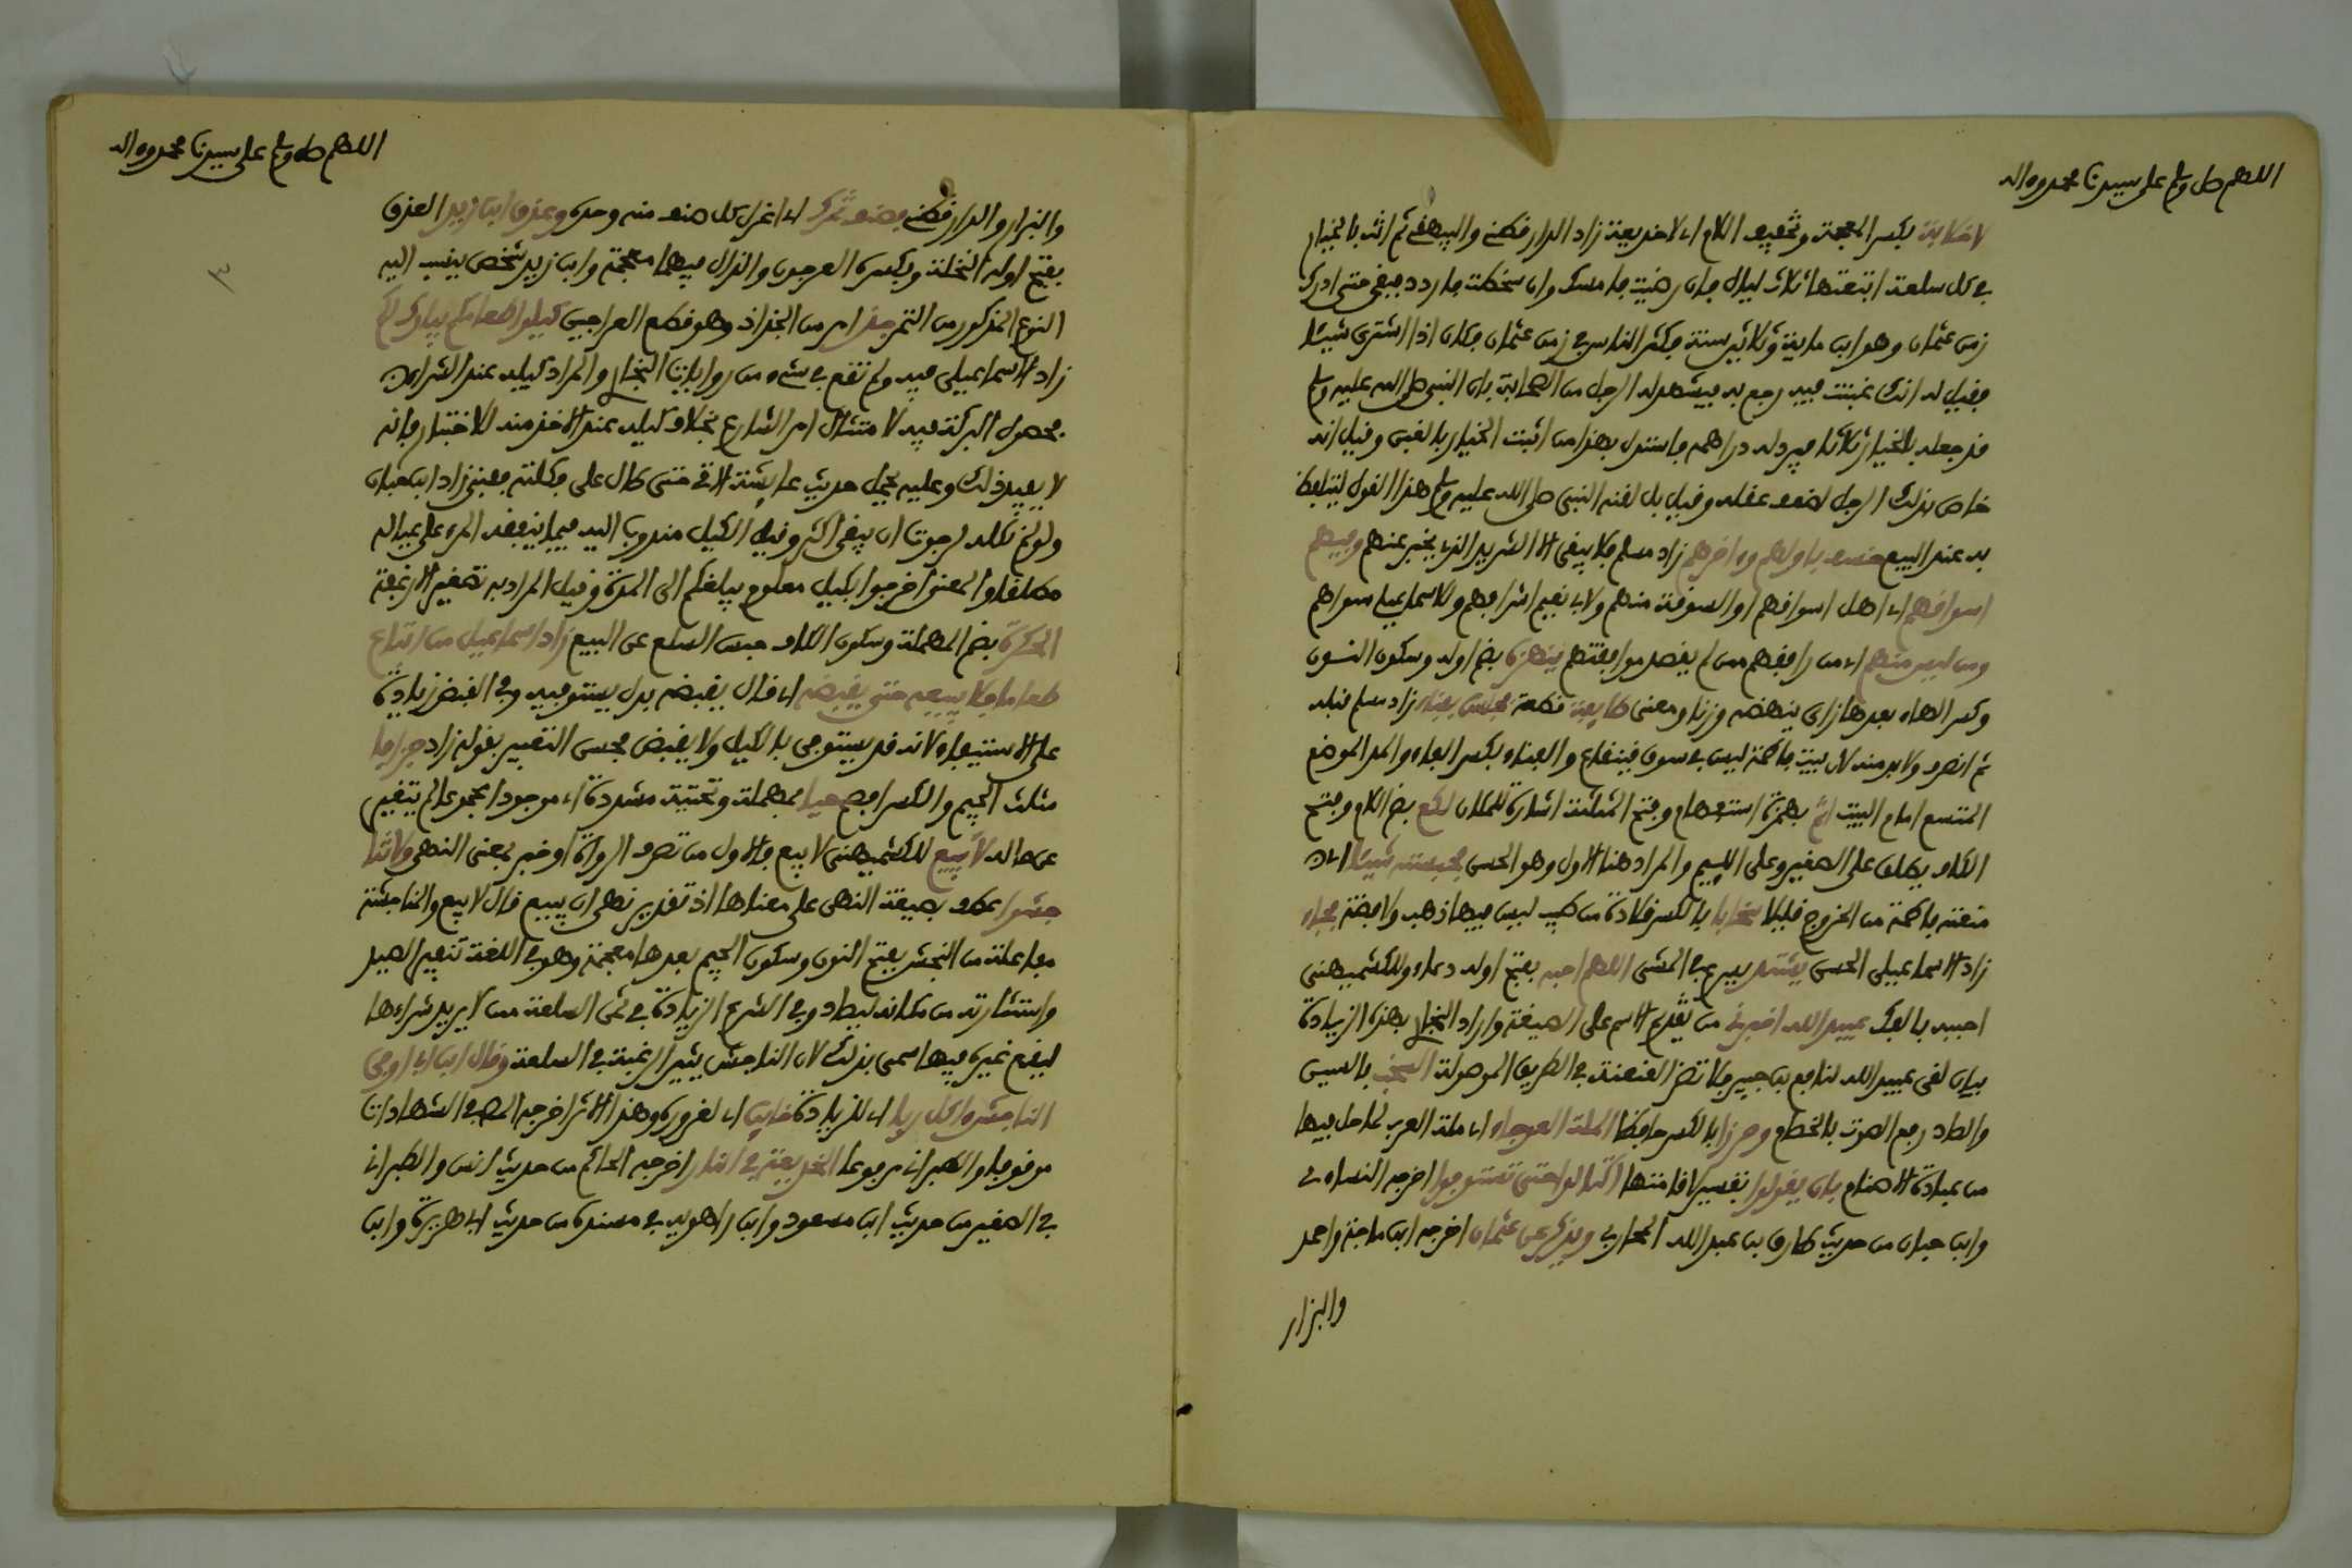 اللهم صل وسلم على سيدنا محمد وءاله
لا خلابة بكسر المعجمة وتخفيف اللام اي لا خديعة زاد الدارقطني والبيهقي ثم انت بالخيار
في كل سلعة ابتعتها ثلاث ليال فان رضيت فامسك وان سخطت فاردد فبقي حتى ادرك
زمن عثمان وهو ابن ماية وثلاثين سنة فكثر الناس في زمن عثمان فكان اذا اشترى شيئا
فقيل له انك غبنت فيه رجع به فيشهد له الرجل من الصحابة بان النبي صلى الله عليه وسلم
قد جعله بالخيار ثلاثا فيرد له دراهمه فاستدل بهذا من اثبت الخيار بالغبن وقيل انه
خاص بذلك الرجل لضعف عقله وقيل بل لقنه النبي صلى الله عليه وسلم هذا القول ليتلفظ
به عند البيع خسف باولهم وءاخرهم زاد مسلم فلا يبقى الا الشريد الذي يخبر عنهم وفيهم
اسواقهم اي اهل اسواقهم او السوقة منهم ولابي نعيم اشرافهم وللاسماعيلي سواهم
ومن ليس منهم اي من رافقهم ممن لم يقصد موافقتهم ينهزه بضم اوله وسكون النون
وكسر الهاء بعدها زاي ينهضه وزنا ومعنى طايفة قطعة مجلس بفناء زاد مسلم قبله
ثم انصرف ولا بد منه لان بيت فاطمة ليس في سوق قينقاع والفناء بكسر الفاء والمد الموضع
المتسع امام البيت اثم بهمزة استفهام وفتح المثلثة اشارة للمكان لكع بضم اللام وفتح
الكاف يطلق على الصغير وعلى اللييم والمراد هنا الاول وهو الحسن فحبسته شيئا اي ان
منعته فاطمة من الخروج قليلا سخابا بالكسر قلادة من طيب ليس فيها ذهب ولا فضة فجاء
زاد الاسماعيلي الحسن يشتد يسرع في المشي اللهم احبه بفتح اوله دعاء وللكشميهني
احببه بالفك عبيد الله اخبرني من تقديم الاسم على الصيغة واراد البخاري بهذه الزيادة
بيان لقي عبيد الله لنافع بن جبير فلا تضر العنعنة في الطريق الموصولة السخب بالسين
والصاد رفع الصوت بالخصام وحرزا بالكسر حافظا الملة العوجاء اي ملة العرب لما دخل فيها
من عبادة الاصنام بان يقولوا تفسير لاقامتها اكتالوا حتى تستوفوا اخرجه النساءي
وابن حبان من حديث طارق بن عبد الله المحاربي ويذكر عن عثمان اخرجه ابن ماجة واحمد
والبزار
اللهم صل وسلم على سيدنا محمد وءاله
والبزار والدارقطني فصنف تمرك اي اعزل كل صنف منه وحده وعذق ابن زيد العذق
بفتح اوله النخلة وبكسره العرجون والذال فيهما معجمة وابن زيد شخص ينسب اليه
النوع المذكور من التمر جذ امر من الجذاذ وهو قطع العراجين كيلوا طعامكم يبارك لكم
زاد الاسماعيلي فيه ولم تقع في شيء من روايات البخاري والمراد كيله عند الشراء لان
بحصول البركة فيه لامتثال امر الشارع بخلاف كيله عند الاخذ منه للاختبار فانه
لا يفيد ذلك وعليه يحمل حديث عايشة الاتي حتى طال علي فكلته ففني زاد ابن حبان
ولو لم نكله لرجوت ان يبقى اكثر وقيل الكيل مندوب اليه فيما ينفقه المرء على عياله
مطلقا والمعنى اخرجوا بكيل معلوم يبلغكم الى المدة وقيل المراد به تصغير الارغفة
الحكرة بضم المهملة وسكون الكاف حبس السلع عن البيع زاد اسماعيل من ابتاع
طعاما فلا يبيعه حتى يقبضه اي قال يقبضه بدل يستوفيه وفي القبض زيادة
على الاستيفاء لانه قد يستوفى بالكيل ولا يقبض فحسن التعبير بقوله زاد جزافا
مثلث الجيم والكسر افصح عينا بمهملة وتحتية مشددة اي موجودا مجموعا لم يتغير
عن حاله لا يبيع للكشميهني لا يبع فالاول من تصرف الرواة او خبر بمعنى النهي ولا تنا
جشوا عطف بصيغة النهي على معناها اذ تقدير نهى ان يبيع قال لا يبع والمناجشة
مفاعلة من النجش بفتح النون وسكون الجيم بعدها معجمة وهو في اللغة تنفير الصيد
واستثارته من مكانه ليصاد وفي الشرع الزيادة في ثمن السلعة ممن لا يريد شراءها
ليقع غيره فيها سمي بذلك لان الناجش يثير الرغبة في السلعة وقال ابن ابي اوفى
الناجش اكل ربا اي للزيادة خاين اي لغروره وهذا الاثر اخرجه المص في الشهادات
مرفوعا والطبراني مرفوعا الخديعة في النار اخرجه الحاكم من حديث انس والطبراني
في الصغير من حديث ابن مسعود وابن راهويه في مسنده من حديث ابي هريرة وابن